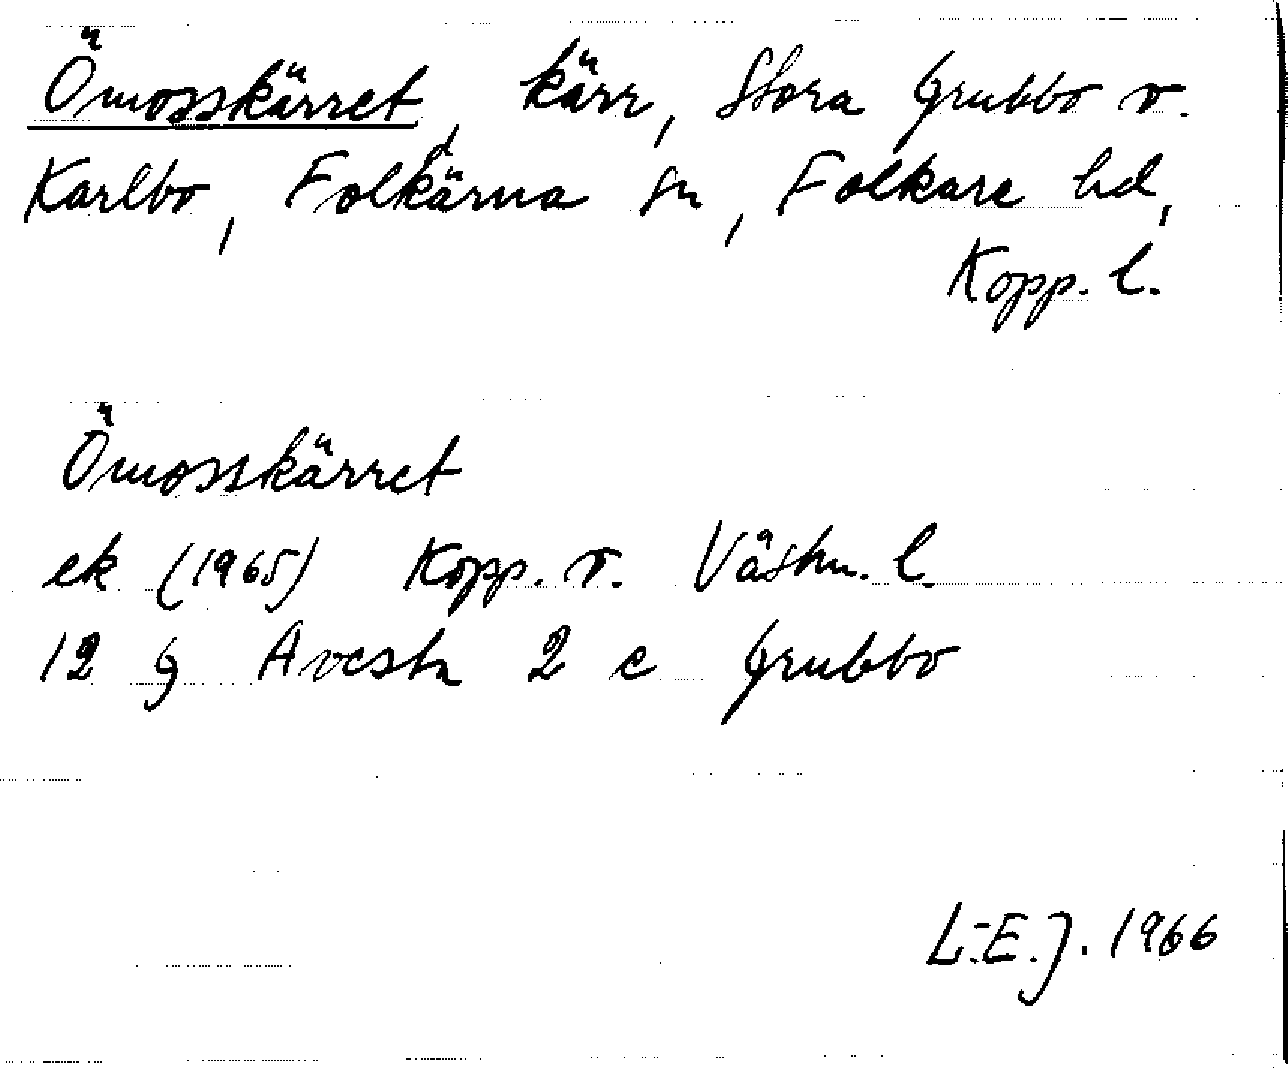 Ömosskärret, kärr, Stora Grubbo v.
Karlbo, Folkärna sn, Folkare hd,
Kopp. l.
Ömosskärret
ek (1965) Kopp. v. Västm. l.
12 G Avesta 2 c Grubbo
L-E.J. 1966